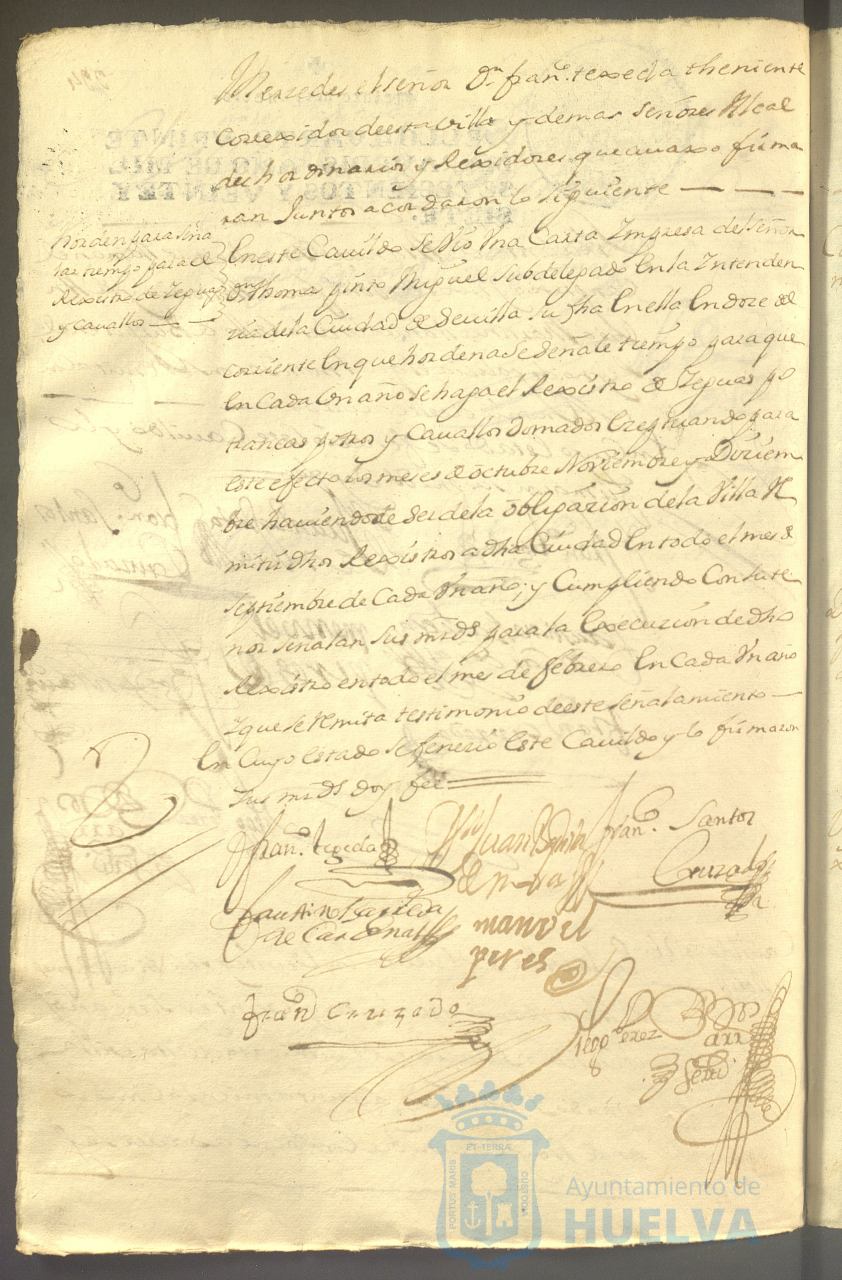 Merzedes el señor Dn. franco. texeda theniente
Correxidor deesta villa y demas señores Alcal
des hordinarios y Rexidores que auaxo firma
ran Juntos acordaron lo siguiente
horden para seña
lar tiempo para el
Rexistro de Yeguas
y cavallos
En este Cauildo se Vio Vna Carta Impresa del señor
Dn. thomas pinto Miguel subdelegado En la Intenden
zia de la Ciudad de Seuilla su fha En ella En doze del
corriente En que hordena se señale tiempo para que
En Cada Un año se haga el Rexistro de Yeguas po
trancas potros y Cavallos Domados Exeptuando para
este efecto los meses de octubre Noviembre y Diziem
bre haviendo de ser de la obligazion de la Villa Re
mitir dhos Rexistros a dha Ciudad En todo el mes de
septiembre de Cada Un año; y Cumpliendo Con su te
nor señalan sus mrds para la Execuzion de dho
Rexistro en todo el mes de febrero En cada Un año
Y que se Remita testimonio de este señalamiento
En Cuyo estado se fenezio Este Cauildo y lo firmaron
sus mrds doy fee
franco. texeda
Juan
franco. Santos
Cruzado
de Cardenas
manuel
peres
franco Cruzado
Perez
ET TERRÆ
PORTUS MARIS
CUSTODIA
Ayuntamiento de
HUELVA